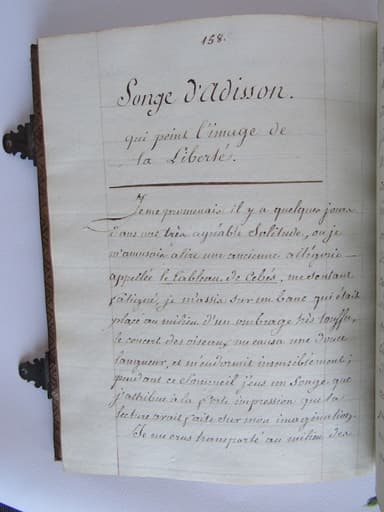 158.
Songe d'Adisson.
qui peint l'image de
la Liberté.
Je me promenais il y a quelques jours
dans une très agréable Solitude, ou je
m'amusais a lire une ancienne allégorie
appellée le Tableau de Cebés, me sentant
fatigué, je m'assis sur un banc qui était
placé au milieu d'un ombrage très touffu,
le concert des oiseaux me causa une douce
langueur, et m'endormit insensiblement;
pendant ce sommeil j'eus un Songe que
j'attribue à la forte impression que la
lecture avait faite sur mon imagination,
Je me crus transporté au milieu des